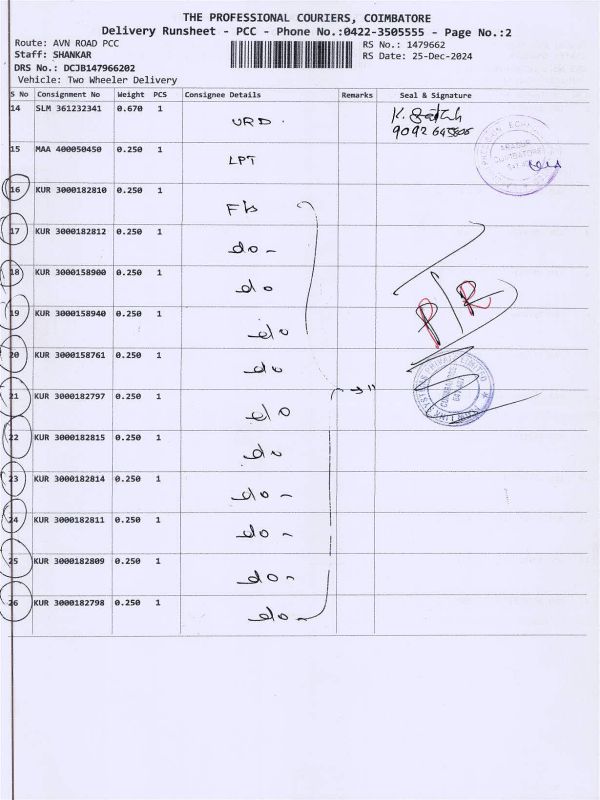 THE PROFESSIONAL COURIERS, COIMBATORE
Delivery Runsheet - PCC - Phone No.:0422-3505555 - Page No.:2
Route: AVN ROAD PCC RS No.: 1479662
Staff: SHANKAR RS Date: 25-Dec-2024
DRS No.: DCJB147966202
Vehicle: Two Wheeler Delivery
S No Consignment No Weight PCS Consignee Details Remarks Seal & Signature
14 SLM 361232341 0.670 1 URD.
15 MAA 400050450 0.250 1 LPT
16 KUR 3000182810 0.250 1
17 KUR 3000182812 0.250 1 do -
18 KUR 3000158900 0.250 1 do
19 KUR 3000158940 0.250 1 do
20 KUR 3000158761 0.250 1 do
21 KUR 3000182797 0.250 1 do
22 KUR 3000182815 0.250 1 do
23 KUR 3000182814 0.250 1 do -
24 KUR 3000182811 0.250 1 do -
25 KUR 3000182809 0.250 1 do -
26 KUR 3000182798 0.250 1 do -
P/R